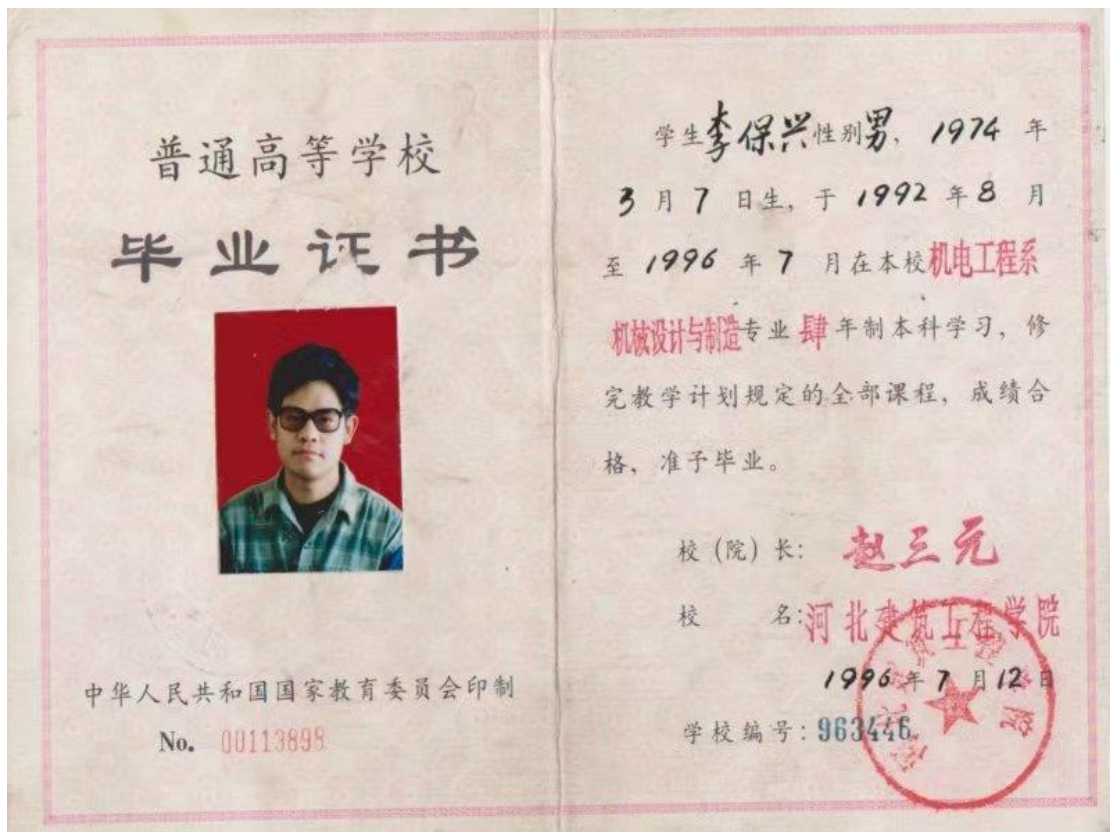 普通高等学校
毕业证书
中华人民共和国国家教育委员会印制
No. 00113898
学生李保兴性别男,1974年
3月7日生,于1992年8月
至1996年7月在本校机电工程系
机械设计与制造专业肆年制本科学习,修
完教学计划规定的全部课程,成绩合
格,准予毕业。
校(院)长:赵三元
校名:河北建筑工程学院
1996年7月12日
学校编号:963446
河北建筑工程学院